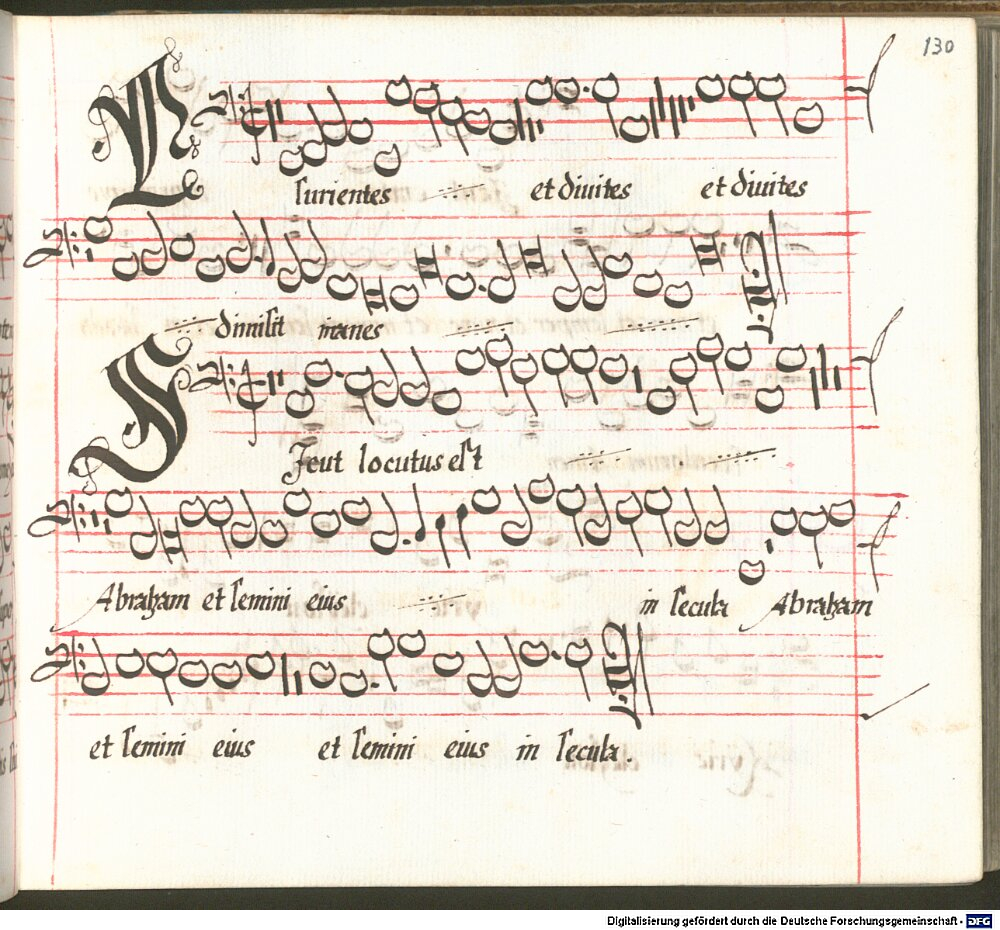 130
Esurientes et diuites et diuites
dimisit inanes
Sicut locutus est
Abraham et semini eius in secula Abraham
et semini eius et semini eius in secula.
Digitalisierung gefördert durch die Deutsche Forschungsgemeinschaft - DFG